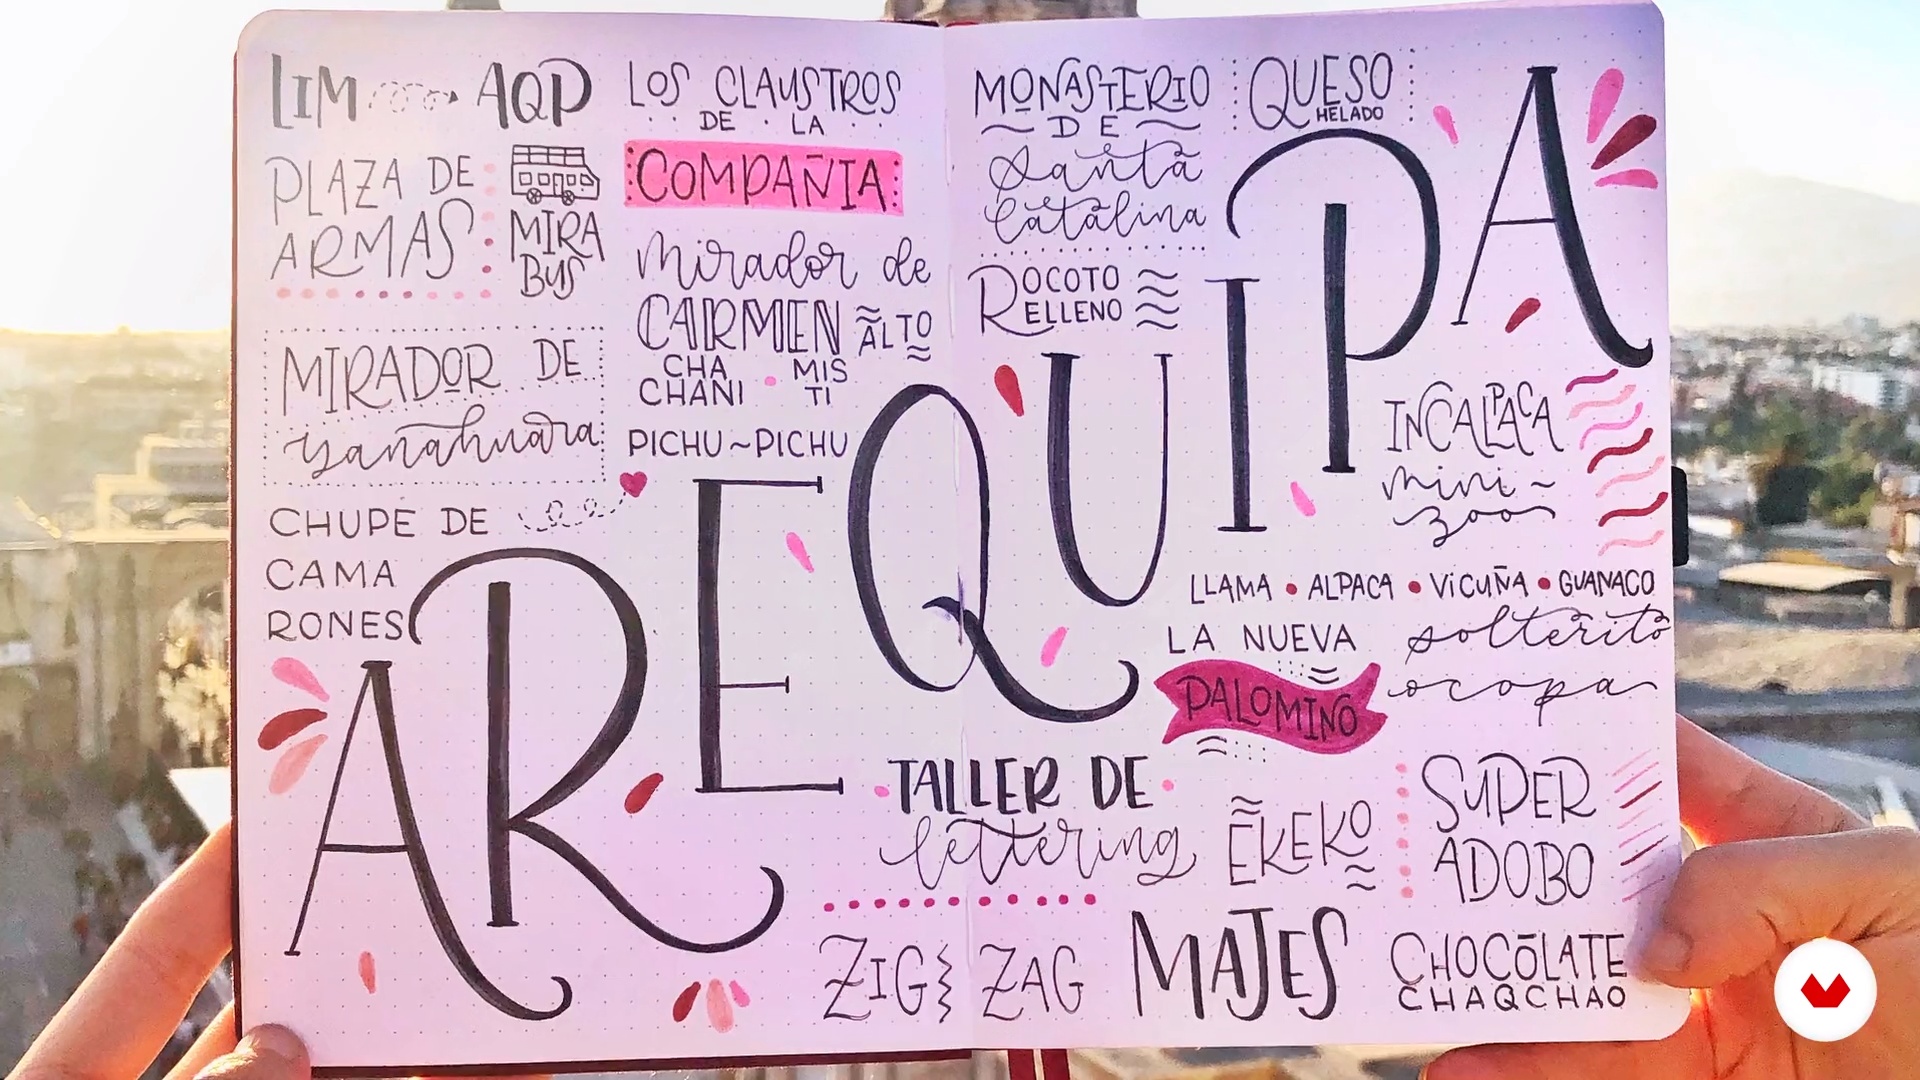 LIM AQP
PLAZA DE
ARMAS
MIRA
BUS
MIRADOR DE
yanahuara
CHUPE DE
CAMA
RONES
LOS CLAUSTROS
DE LA
COMPAÑIA
Mirador de
CARMEN ALTO
CHA
CHANI
MIS
TI
PICHU~PICHU
AREQUIPA
MONASTERIO
DE
Santa
Catalina
QUESO
HELADO
ROCOTO
RELLENO
INCALPACA
mini~
zoo
LLAMA • ALPACA • VICUÑA • GUANACO
LA NUEVA
PALOMINO
solterito
ocopa
TALLER DE
lettering
EKEKO
SUPER
ADOBO
ZIG ZAG
MAJES
CHOCOLATE
CHAQCHAO